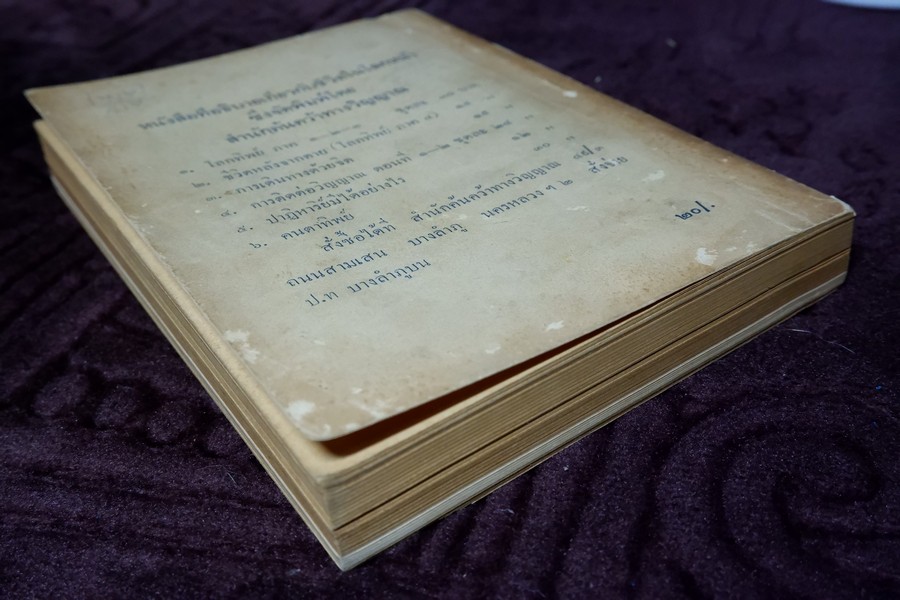 หนังสือที่อธิบายเกี่ยวกับชีวิตในโลกหน้า
ซึ่งจัดพิมพ์โดย
สำนักค้นคว้าทางวิญญาณ
๑. โลกทิพย์ ภาค ๑-๒-๓ ชุดละ
๒. ชีวิตหลังจากตาย (โลกทิพย์ ภาค ๔)
๓. การเดินทางด้วยจิต
๔. การติดต่อวิญญาณ ตอนที่ ๑-๒ ชุดละ ๒๔ "
๕. ปาฏิหาริย์มีได้อย่างไร ๑๒ "
๖. คนตาทิพย์ ๑๐ "
สั่งซื้อได้ที่ สำนักค้นคว้าทางวิญญาณ
ถนนสามเสน บางลำภู นครหลวง ฯ ๒ สั่งจ่าย
ป.ท บางลำภูบน
๒๐/.